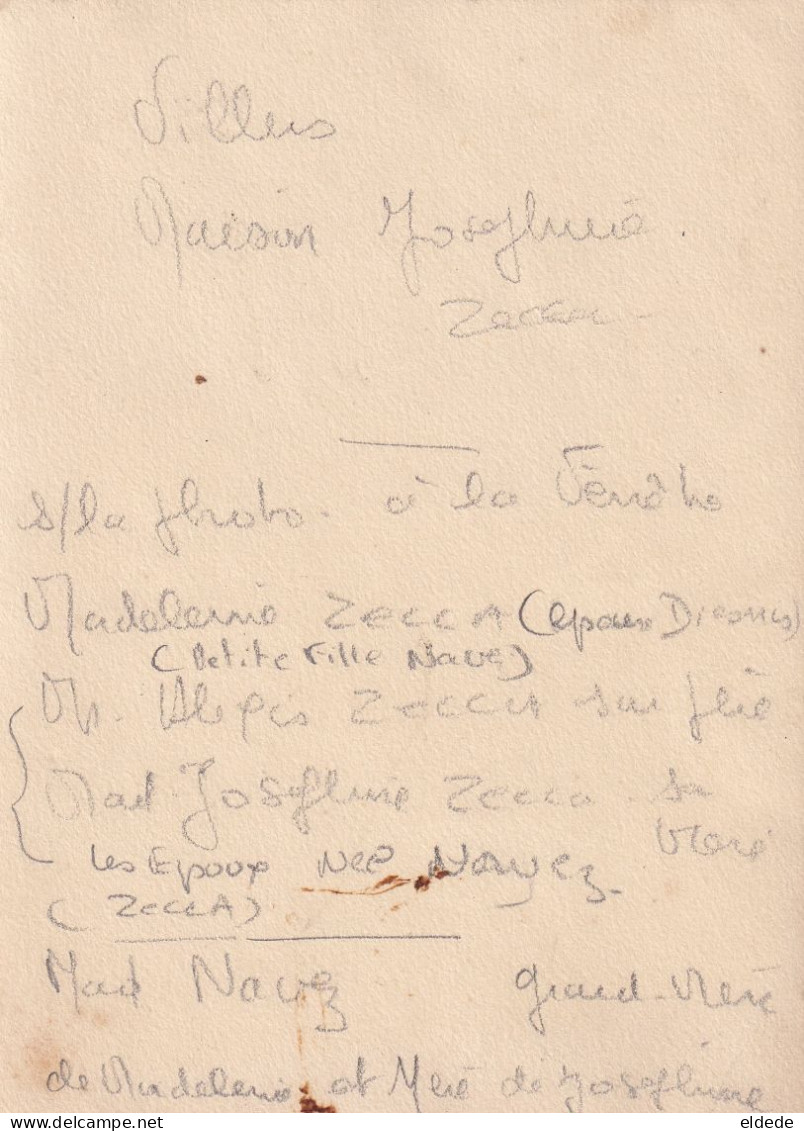 Villers
Maison Josephine
Zecca
s/la photo. à la fenêtre
Madeleine ZECCA (epoux
(Petite Fille Navez)
M. Alexis ZECCA son père
Mad. Josephine Zecca. sa
Mère
Les Epoux Neé Navez.
(ZECCA)
Mad Navez grand-Mère
de Madeleine et Mère de Josephine
eldede
© delcampe.net